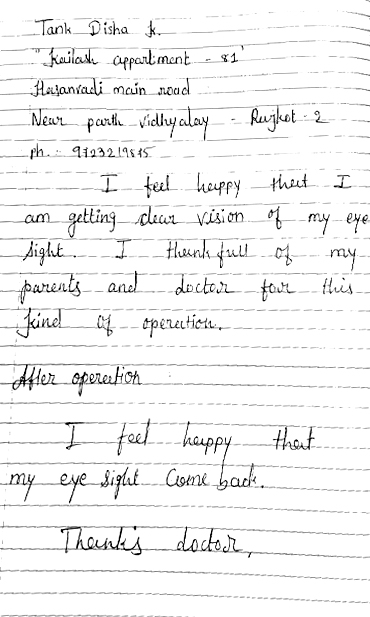 Tank Disha k.
"Kailash appartment - 81'
Hasanvadi main road
Near parth vidhyalay - Rajkot - 2
ph. : 9723219845
I feel happy that I
am getting clear vision of my eye
sight. I thankfull of my
parents and doctor for this
kind of operation.
After operation
I feel happy that
my eye sight come back.
Thanks doctor,